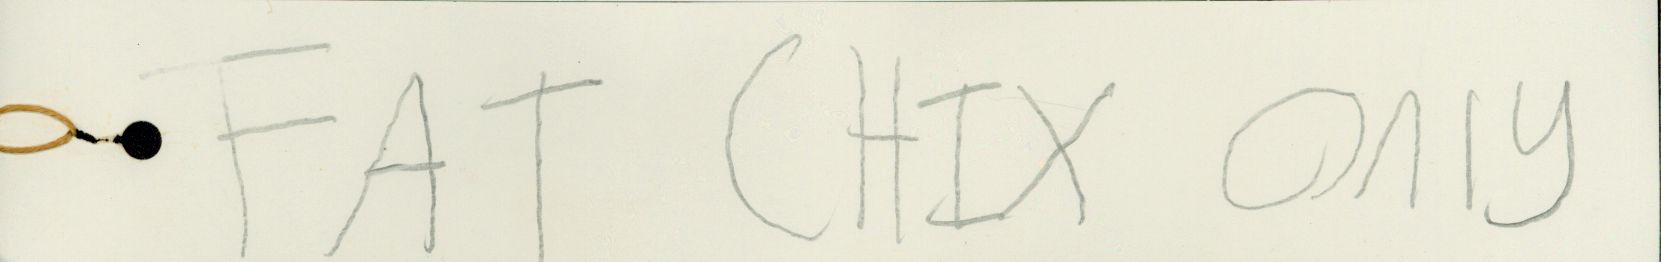 FAT CHIX Only